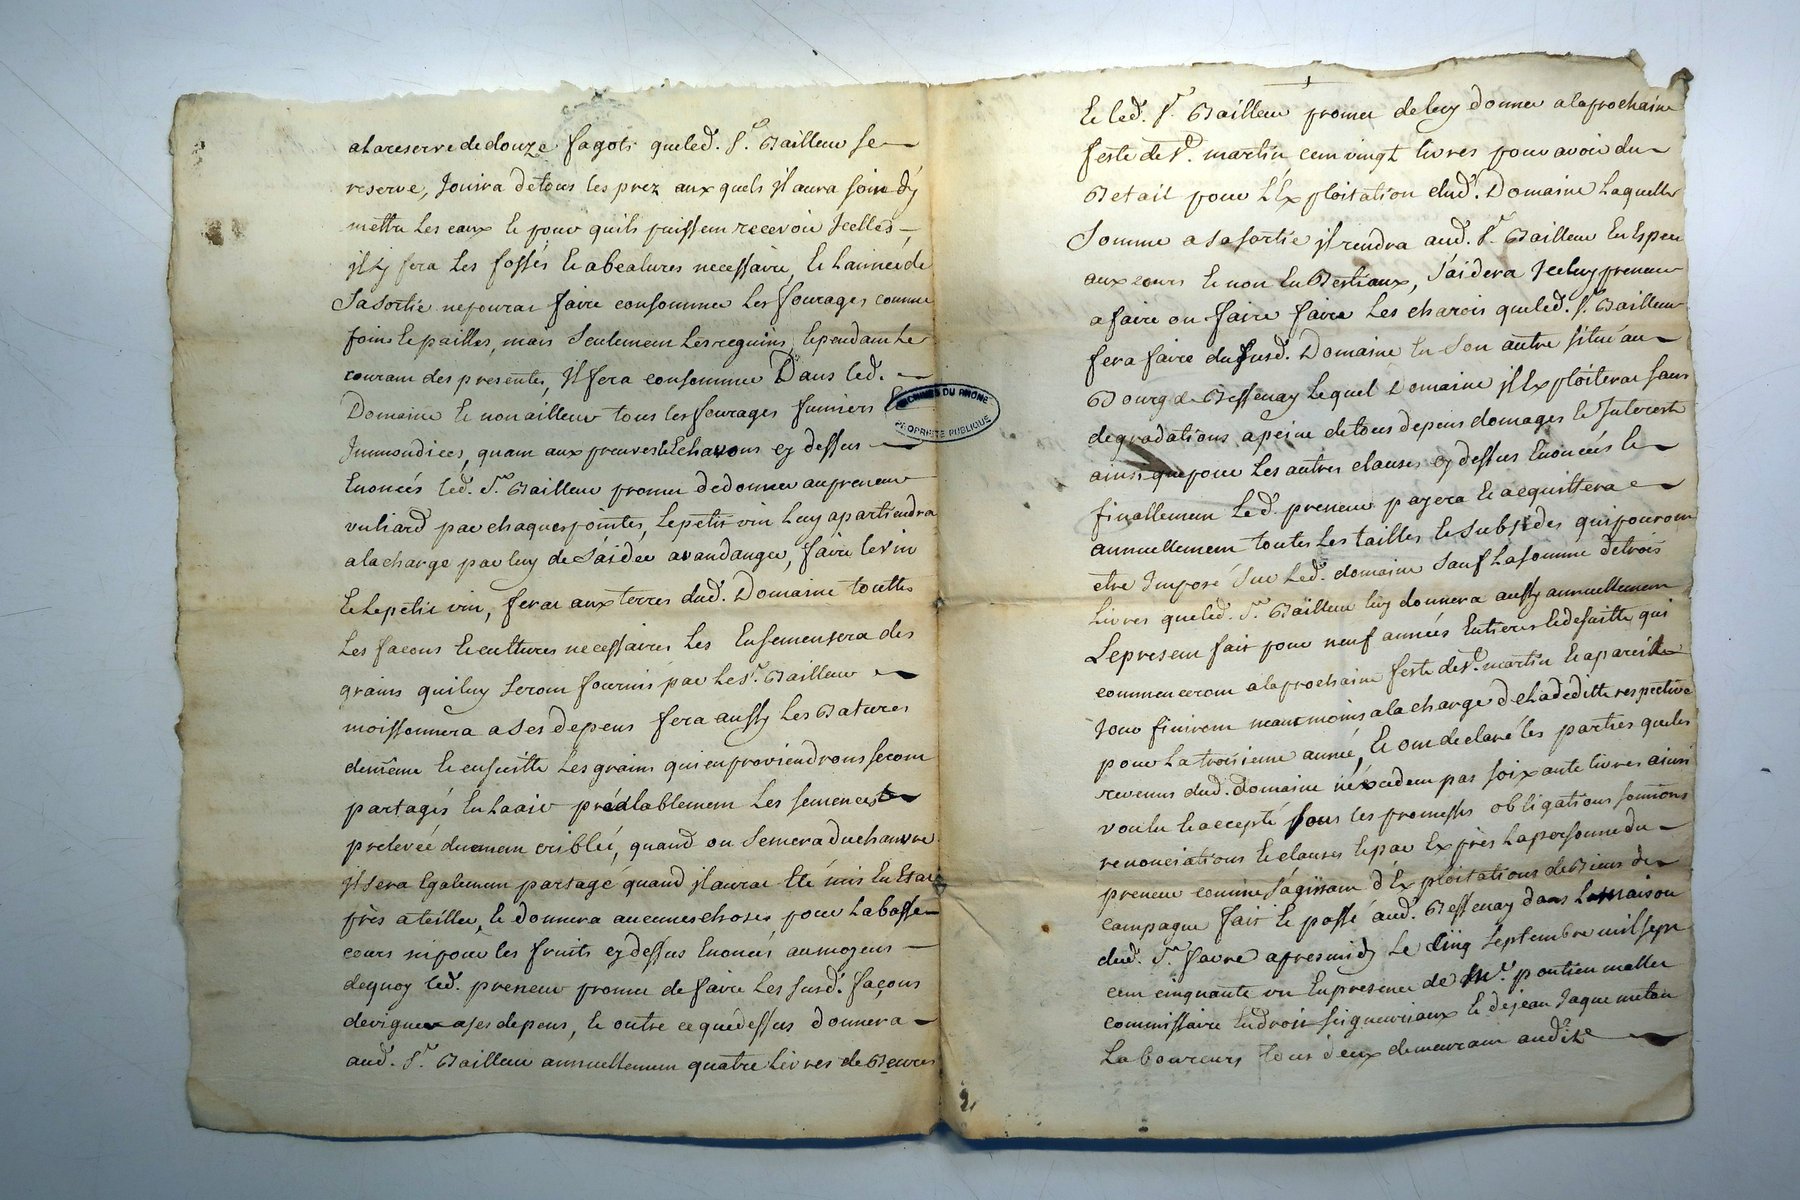 alareserve de douze fagots queled. Sr. Bailleur se
reserve, Jouira detous les prez aux quels jl aura soin d'y
mettre les eaux le jour quils puissent recevoir Jcelles
jl y fera les fossés et abealures necessaire, et lannée de
sa sortie nepourat faire consommer les fourages comme
foins et pailles, mais seulement les reguins, et pendant le
courant des presentes, jl fera consommer Dans led.
Domaine et non ailleur tous les fourages fumiers et
Jmmondices, quant aux preuves et Echavons cy dessus
Enoncés led. Sr. Bailleur promet dedonner aupreneur
vuliard par chaques pointes, le petit vin luy apartiendra
alacharge par luy de s'aider avandanger, faire levin
et le petit vin, ferat aux terres dud. Domaine touttes
les facons et cultures necessaires les Ensemensera des
grains quiluy seront fournis par le sr. Bailleur
moissonnera a ses depens fera aussy les Batures
demême et ensuitte les grains quien proviendront seront
partagés En laaire préalablement les semences
prelevée duement criblée, quand on semera du chanvre
jl sera Egalement partagé quand jl aurat Eté mis En Etat
près a teiller, et donnera aucunes choses pour la basse
cours ni pour les fruits cy dessus Enoncés aumoyens
dequoy led. preneur promet de faire les susd. façons
devigner a ses depens, et outre ce que dessus donnera
aud. Sr. Bailleur annuellement quatre livres de Beures
Et led. Sr. Bailleur promet deluy donner alaprochaine
feste de St. martin cent vingt livres pour avoir du
Betail pour l'Exploitation dud. Domaine laquelle
somme a sa sortie jl rendra aud. Sr. Bailleur En Espece
aux cours et non En Bestiaux, s'aidera Jceluy preneur
a faire ou faire faire les charois queled. Sr. Bailleur
fera faire du susd. Domaine En son autre situé au
Bourg de Bessenay lequel Domaine jl Exploiterat sans
degradations apeine detous depens domages et Jnterests
ainsi que pour les autres clauses cy dessus Enoncées et
finallement led. preneur payera et acquittera
annuellement toutes les tailles et subsides qui pouront
etre Jmposé sur led. domaine sauf la somme de trois
livres queled. Sr. Bailleur luy donnera aussy annuellement
Le present fait pour neuf années Entieres et desuitte qui
commenceront alaprochaine feste de St. martin et apareil
Jour finiront neantmoins alacharge de la deditte respective
pour la troisieme année, Et ont declaré les parties queles
revenus dud. domaine n'éxcedent pas soixante livres ainsi
voulu et accepté sous les promesses obligations soumions
renonciations et clauses et par Exprès la personne du
preneur comme s'agissant d'Exploitations de Biens de
campagne fait et passé aud. Bessenay dans la maison
dud. Sr. favre apres midy le cinq septembre mil sept
cent cinquante un En presence de Mr. pontien mallet
commissaire En droit seigneuriaux et de jean Jaque meton
Laboureurs tous deux demeurant audite
ARCHIVES DU RHONE
PROPRIETE PUBLIQUE
2